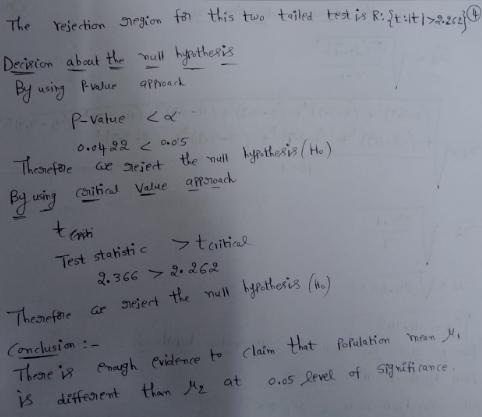 The rejection region for this two tailed test is R: {t:|t|>2.262} 4
Decision about the null hypothesis
By using P-value approach
P-value < α
0.0422 < 0.05
Therefore we reject the null hypothesis (H₀)
By using critical value approach
t criti
Test statistic > t critical
2.366 > 2.262
Therefore we reject the null hypothesis (H₀)
Conclusion :-
There is enough evidence to claim that population mean μ₁
is different than μ₂ at 0.05 level of significance.